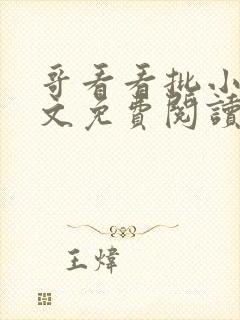 哥看看批小
文免費閱讀
王煒